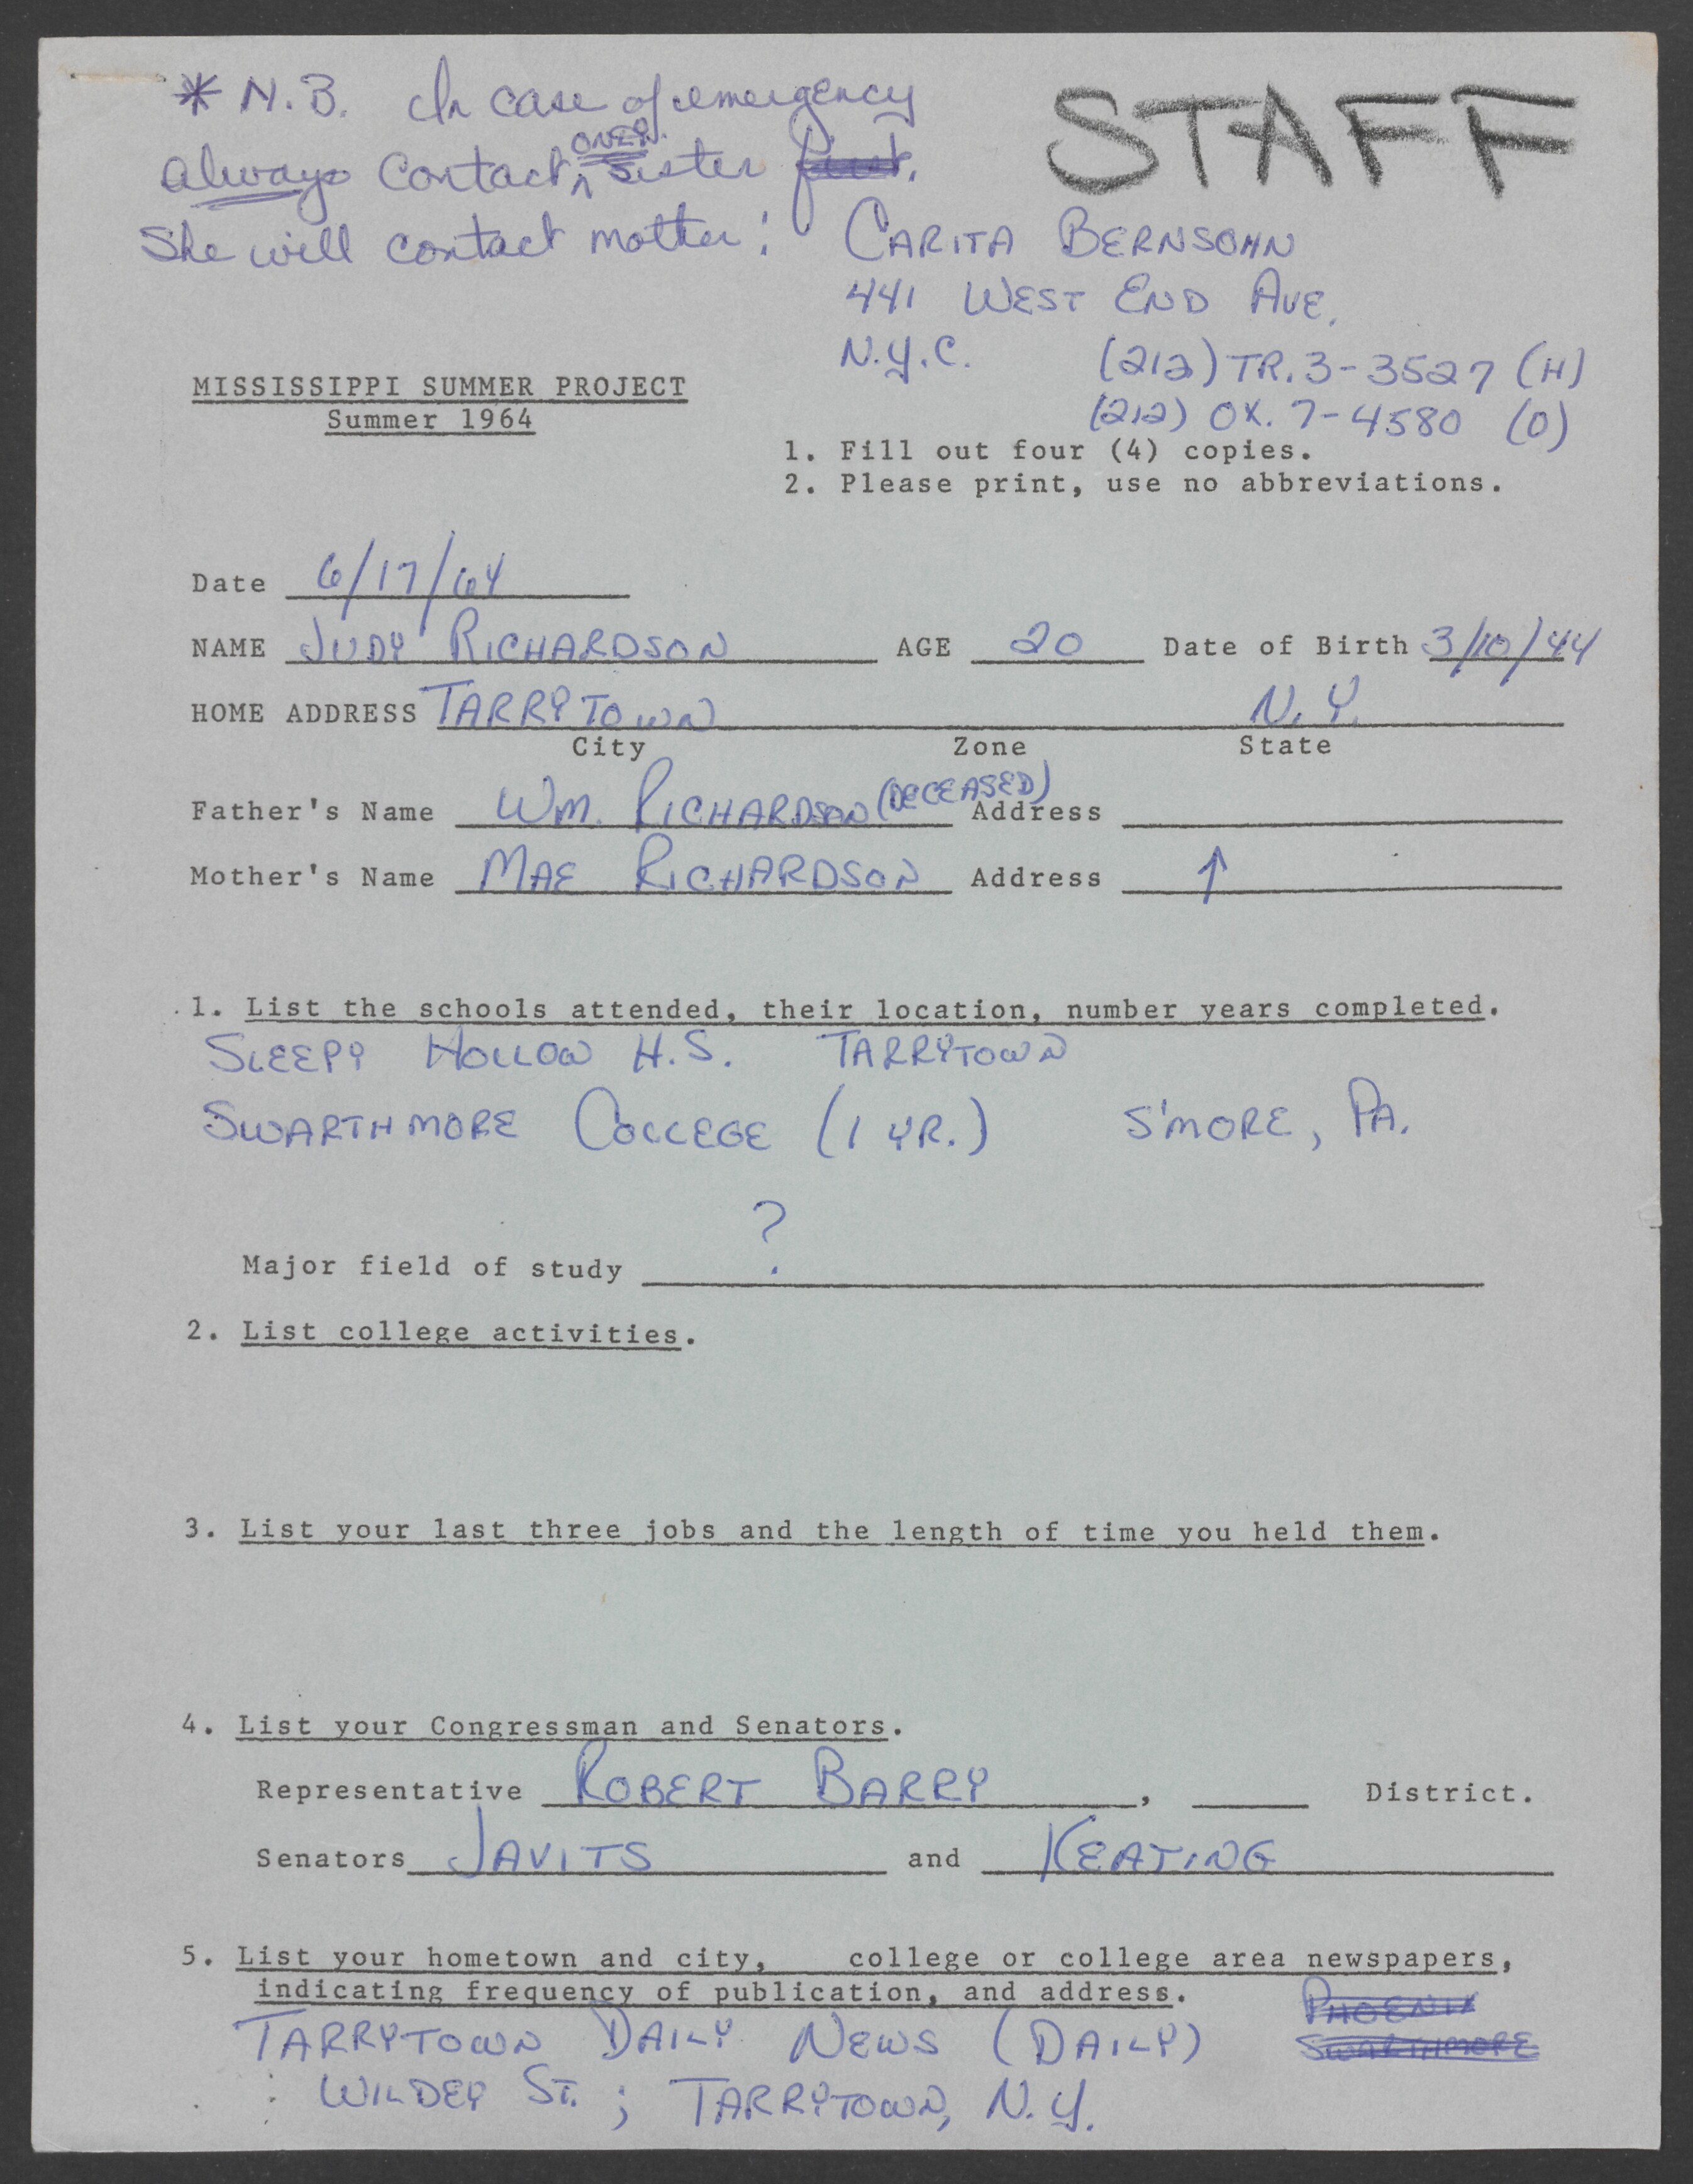 * N.B. In case of emergency
STAFF
always contact ONLY sister first.
She will contact mother: CARITA BERNSOHN
441 WEST END AVE.
N.Y.C. (212) TR. 3-3527 (H)
(212) OX. 7-4580 (O)
MISSISSIPPI SUMMER PROJECT
Summer 1964
1. Fill out four (4) copies.
2. Please print, use no abbreviations.
Date 6/17/64
NAME JUDY RICHARDSON AGE 20 Date of Birth 3/10/44
HOME ADDRESS TARRYTOWN N.Y.
City Zone State
Father's Name WM. RICHARDSON (DECEASED) Address
Mother's Name MAE RICHARDSON Address ↑
1. List the schools attended, their location, number years completed.
SLEEPY HOLLOW H.S. TARRYTOWN
SWARTHMORE COLLEGE (1 YR.) S'MORE, PA.
Major field of study ?
2. List college activities.
3. List your last three jobs and the length of time you held them.
4. List your Congressman and Senators.
Representative ROBERT BARRY, District.
Senators JAVITS and KEATING
5. List your hometown and city, college or college area newspapers,
indicating frequency of publication, and address.
PHOENIX
TARRYTOWN DAILY NEWS (DAILY) SWARTHMORE
WILDEY ST. ; TARRYTOWN, N.Y.